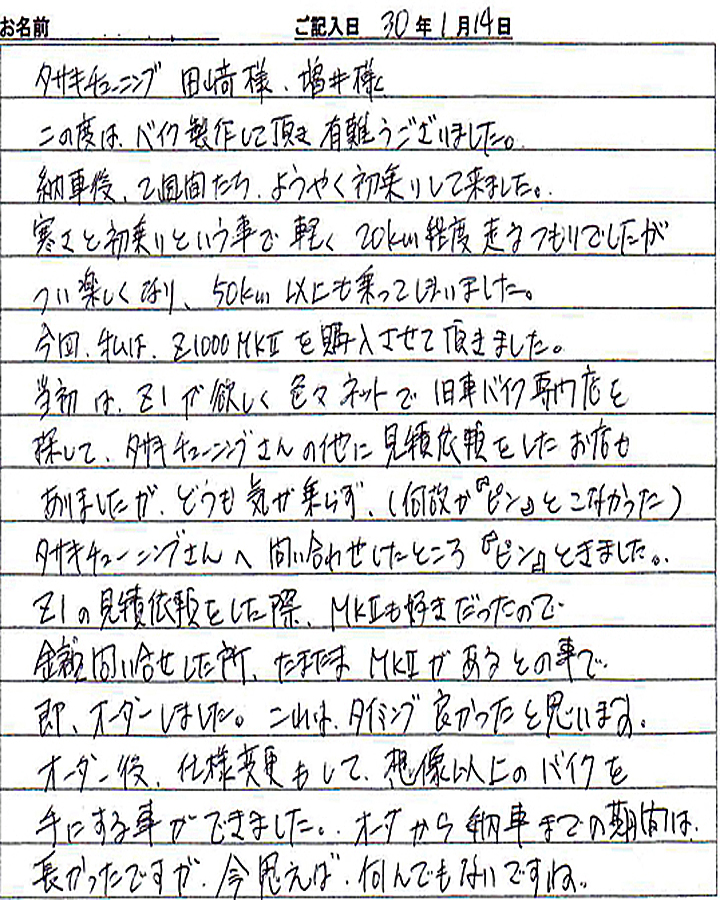 お名前 ご記入日 30年1月14日
タサキチューニング 田崎様、増井様へ
この度は、バイク製作して頂き有難うございました。
納車後、2週間たち、ようやく初乗りして来ました。
寒さと初乗りという事で軽く20km程度走るつもりでしたが
つい楽しくなり、50km以上も乗ってしまいました。
今回、私は、Z1000MKⅡを購入させて頂きました。
当初は、Z1が欲しく色々ネットで旧車バイク専門店を
探して、タサキチューニングさんの他に見積依頼をしたお店も
ありましたが、どうも気が乗らず、(何故か『ピン』とこなかった)
タサキチューニングさんへ問い合わせしたところ『ピン』ときました。
Z1の見積依頼をした際、MKⅡも好きだったので
金額問い合せした所、たまたまMKⅡがあるとの事で、
即、オーダーしました。これは、タイミング良かったと思います。
オーダー後、仕様変更もして、想像以上のバイクを
手にする事ができました。オーダから納車までの期間は、
長かったですが、今思えば、何んでもないですね。